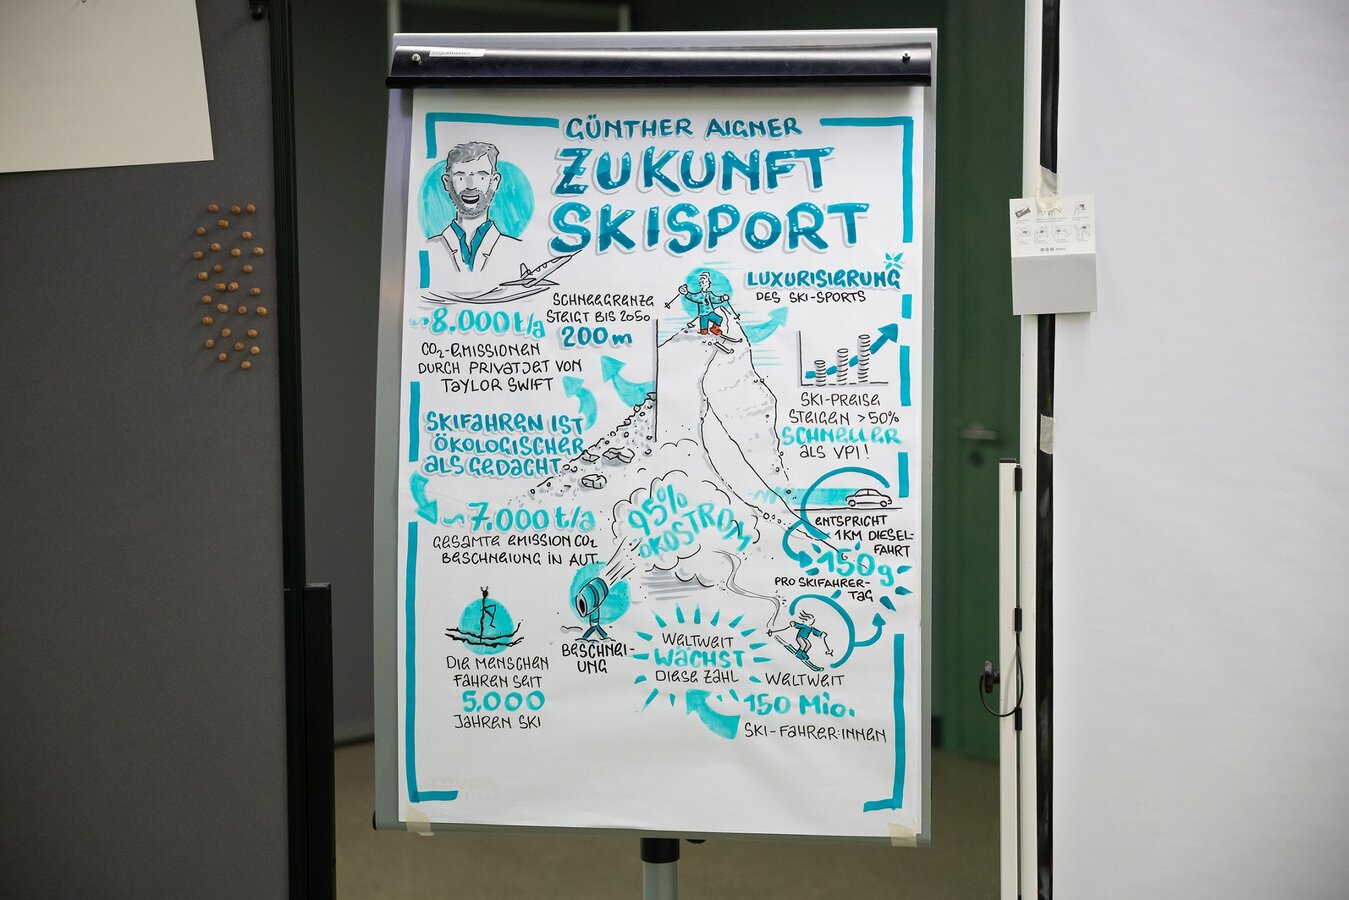 GÜNTHER AIGNER
ZUKUNFT
SKISPORT
~8.000 t/a
CO₂-EMISSIONEN
DURCH PRIVATJET VON
TAYLOR SWIFT
SCHNEEGRENZE
STEIGT BIS 2050
200 m
LUXURISIERUNG
DES SKI-SPORTS
SKI-PREISE
STEIGEN >50%
SCHNELLER
ALS VPI!
SKIFAHREN IST
ÖKOLOGISCHER
ALS GEDACHT
~7.000 t/a
GESAMTE EMISSION CO₂
BESCHNEIUNG IN AUT.
95%
ÖKOSTROM
ENTSPRICHT
1KM DIESEL-
FAHRT
150g
PRO SKIFAHRER-
TAG
BESCHNEI-
UNG
DIE MENSCHEN
FAHREN SEIT
5.000
JAHREN SKI
WELTWEIT
WÄCHST
DIESE ZAHL
WELTWEIT
150 Mio.
SKI-FAHRER:INNEN